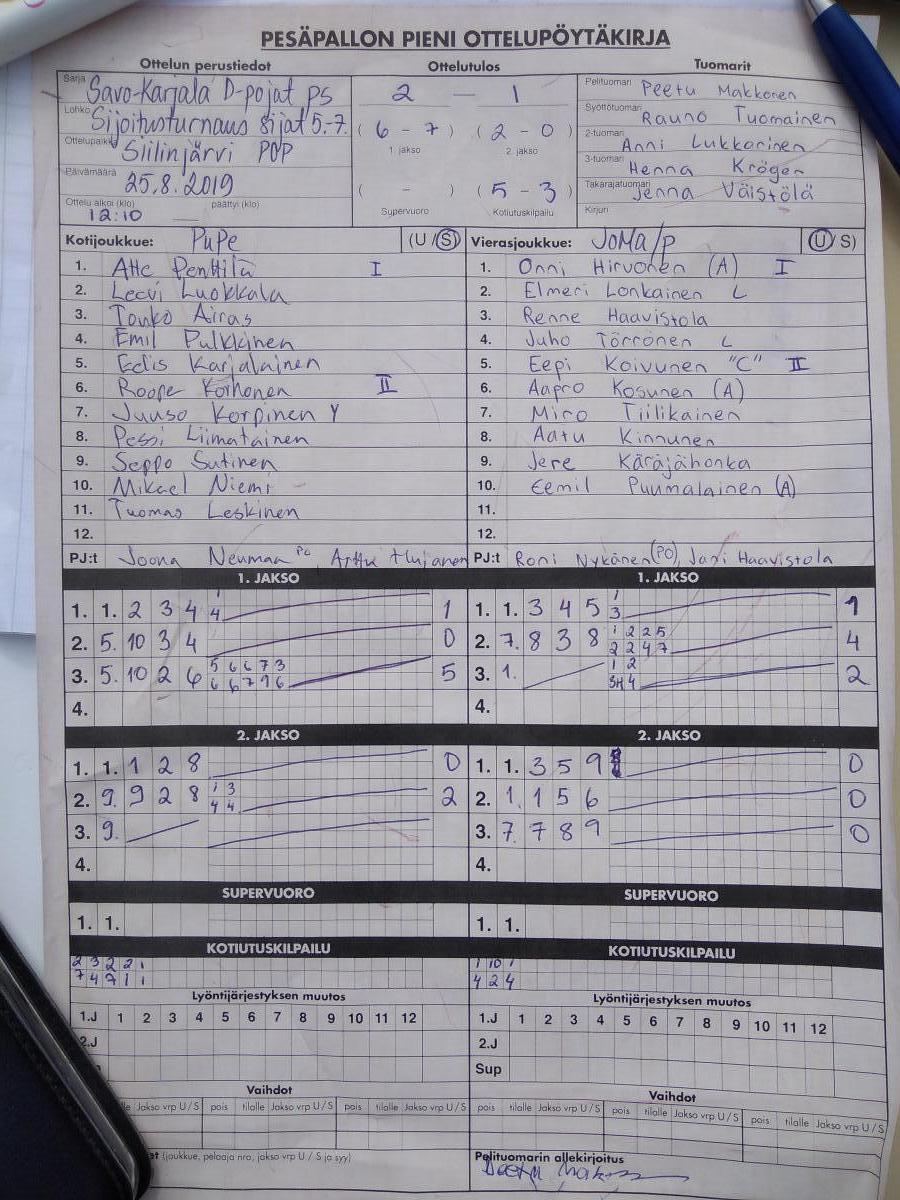 PESÄPALLON PIENI OTTELUPÖYTÄKIRJA
Ottelun perustiedot Ottelutulos Tuomarit
Sarja Savo-Karjala D-pojat ps
Lohko Sijoitusturnaus sijat 5.-7.
Ottelupaikka Siilinjärvi POP
Päivämäärä 25.8.2019
Ottelu alkoi (klo) 12:10 päättyi (klo)
2 — 1
( 6 - 7 ) ( 2 - 0 )
1. jakso 2. jakso
( - ) ( 5 - 3 )
Supervuoro Kotiutuskilpailu
Pelituomari Peetu Makkonen
Syöttötuomari Rauno Tuomainen
2-tuomari Anni Lukkarinen
3-tuomari Henna Kröger
Takarajatuomari Jenna Väistölä
Kirjuri
Kotijoukkue: PuPe (U/S)
1. Atte Penttilä I
2. Leevi Luokkala
3. Touko Airas
4. Emil Pulkkinen
5. Eelis Karjalainen
6. Roope Korhonen II
7. Juuso Korpinen Y
8. Pessi Liimatainen
9. Seppo Sutinen
10. Mikael Niemi
11. Tuomas Leskinen
12.
PJ:t Joona Neuman PO Arttu
Vierasjoukkue: JoMa/p (U/S)
1. Onni Hirvonen (A) I
2. Elmeri Lonkainen L
3. Renne Haavistola
4. Juho Törrönen L
5. Eepi Koivunen "C" II
6. Aapro Kosunen (A)
7. Miro Tiilikainen
8. Aatu Kinnunen
9. Jere Käräjähonka
10. Eemil Puumalainen (A)
11.
12.
PJ:t Roni Nykänen (PO), Jani Haavistola
1. JAKSO
1. 1. 2 3 4 1 4 1
2. 5. 10 3 4 0
3. 5. 10 2 6 5 6 6 7 3 6 6 7 9 6 5
4.
1. JAKSO
1. 1. 3 4 5 1 3 1
2. 7. 8 3 8 1 2 2 5 2 2 4 7 4
3. 1. 1 2 3H 4 2
4.
2. JAKSO
1. 1. 1 2 8 0
2. 9. 9 2 8 1 3 4 4 2
3. 9.
4.
2. JAKSO
1. 1. 3 5 9 0
2. 1. 1 5 6 0
3. 7. 7 8 9 0
4.
SUPERVUORO
1. 1.
SUPERVUORO
1. 1.
KOTIUTUSKILPAILU
2 3 2 2 1
7 4 9 1 1
KOTIUTUSKILPAILU
1 10 1
4 2 4
Lyöntijärjestyksen muutos
1.J 1 2 3 4 5 6 7 8 9 10 11 12
2.J
Lyöntijärjestyksen muutos
1.J 1 2 3 4 5 6 7 8 9 10 11 12
2.J
Sup
Vaihdot
Jakso vrp U / S pois tilalle Jakso vrp U / S pois tilalle Jakso vrp U / S
Vaihdot
pois tilalle Jakso vrp U / S pois tilalle Jakso vrp U / S pois tilalle Jakso vrp U / S
(joukkue, pelaaja nro, jakso vrp U / S ja syy)
Pelituomarin allekirjoitus